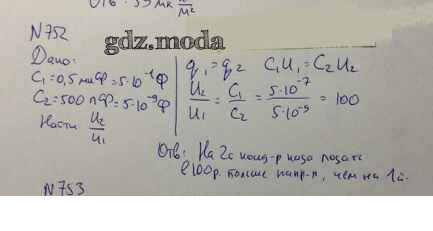 Отв: 33 мк
м²
N752
gdz.moda
Дано:
C₁=0,5 мкФ=5·10⁻⁷Ф
C₂=500 пФ=5·10⁻⁹Ф
Найти U₂/U₁
q₁=q₂ C₁U₁=C₂U₂
U₂/U₁ = C₁/C₂ = 5·10⁻⁷/5·10⁻⁹ = 100
Отв: На 2й конд-р надо подать
в 100р. больше напр-я, чем на 1й.
N753